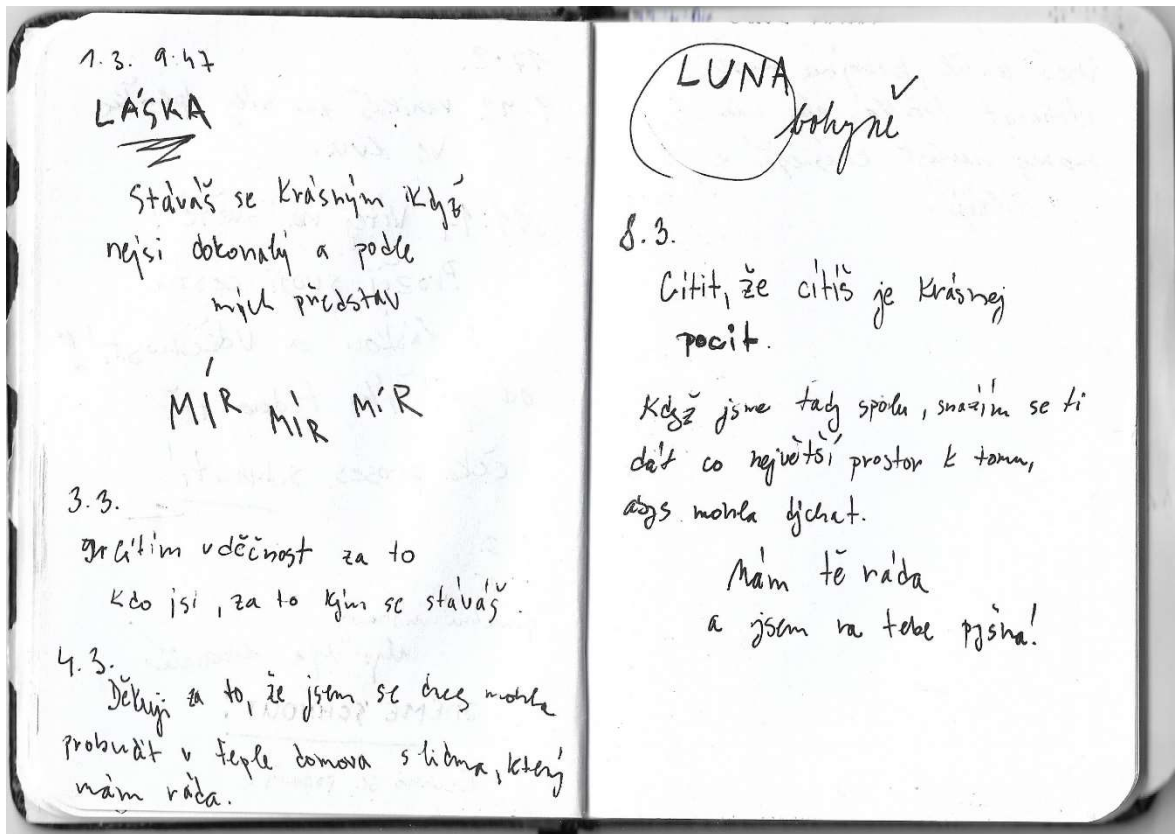 1.3. 9.47
LÁSKA
Stáváš se krásným ikdyž
nejsi dokonalý a podle
mých představ
MÍR MÍR MÍR
3.3.
cítím vděčnost za to
kdo jsi, za to kým se stáváš.
4.3.
Děkuji za to, že jsem se dnes mohla
probudit v teple domova s lidma, který
mám ráda.
LUNA
bohyně
8.3.
Cítit, že cítíš je krásnej
pocit.
Když jsme tady spolu, snažím se ti
dát co největší prostor k tomu,
abys mohla dýchat.
Mám tě ráda
a jsem na tebe pyšná!